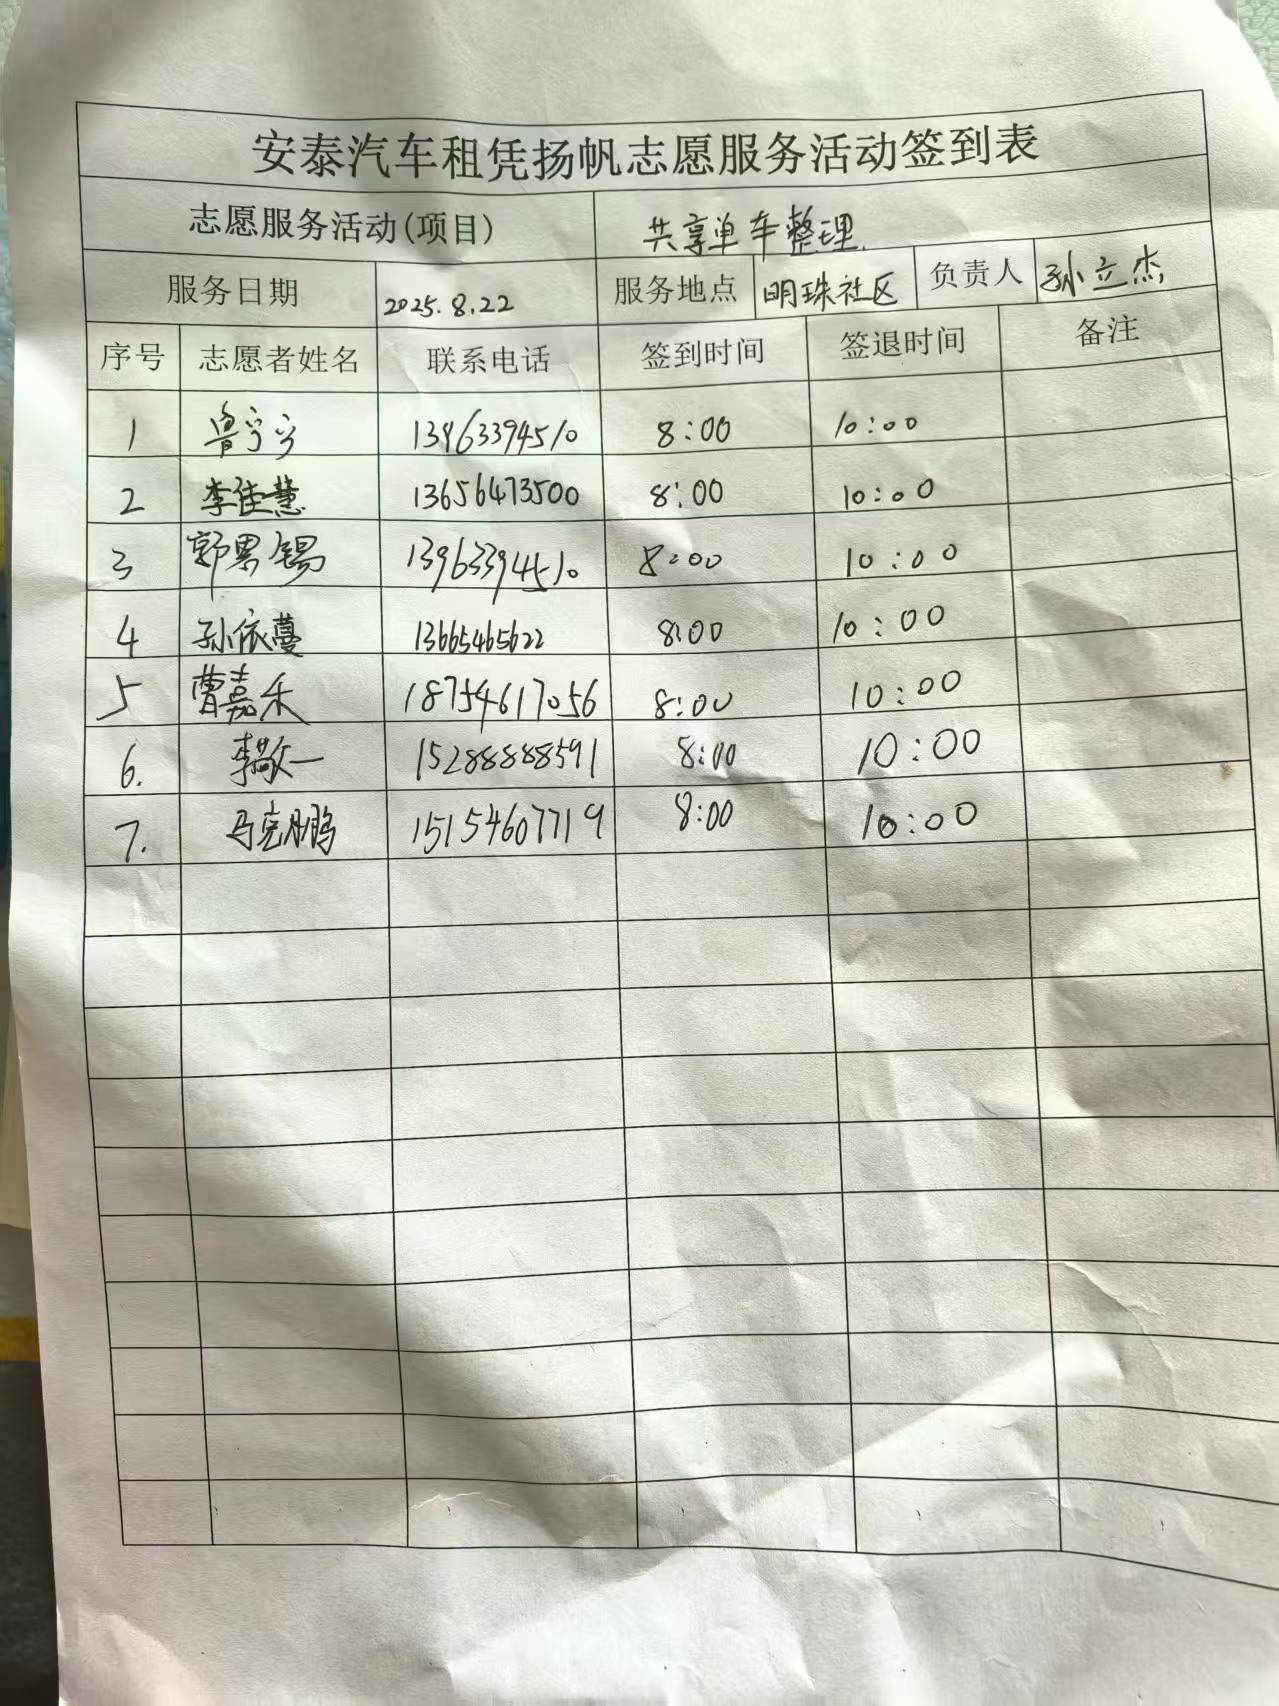 安泰汽车租凭扬帆志愿服务活动签到表
志愿服务活动(项目) 共享单车整理
服务日期 2025.8.22 服务地点 明珠社区 负责人 孙立杰
序号 志愿者姓名 联系电话 签到时间 签退时间 备注
1 鲁宁宁 13963394510 8:00 10:00
2 李佳慧 13656473500 8:00 10:00
3 郭思锡 13963394510 8:00 10:00
4 孙依蔓 13665465622 8:00 10:00
5 曹嘉禾 18754617056 8:00 10:00
6. 李敬一 15288888591 8:00 10:00
7. 马克鹏 15154607719 8:00 10:00